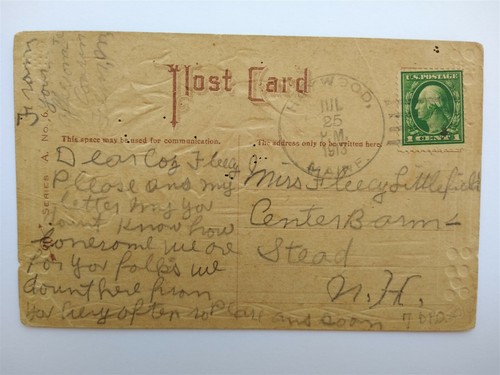 From
your
Post Card
This space may be used for communication.
The address only to be written here.
SERIES A. No.
JUL
25
P.M.
1913
MAINE
U.S. POSTAGE
1 CENT 1
Dear Coz Fleecy
Please ans my
letter my You
dount know how
lonesome we are
for Your folks we
dount here from
You Very often so Pleas ans soon
Miss Fleecy Littlefield
Center Barn-
Stead
N.H.